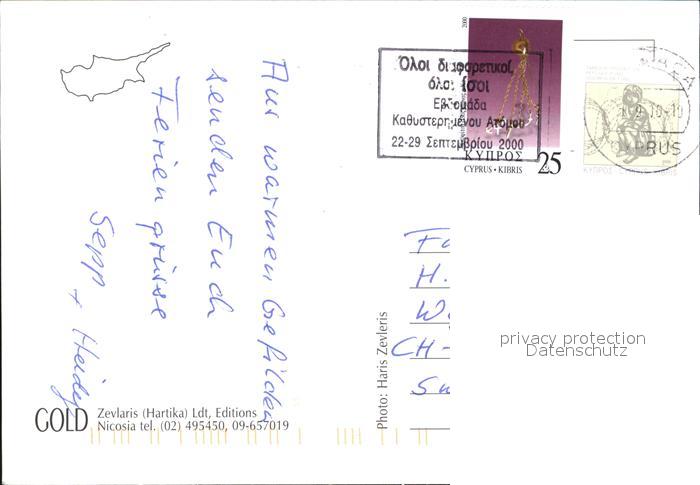 Aus warmen Gefilden
senden Euch
Feriengrüsse
Sepp + Heidy
GOLD
Zevlaris (Hartika) Ldt, Editions
Nicosia tel. (02) 495450, 09-657019
Photo: Haris Zevleris
2000
Όλοι διαφορετικοί,
όλοι ίσοι
Εβδομάδα
Καθυστερημένου Ατόμου
22-29 Σεπτεμβρίου 2000
ΚΥΠΡΟΣ
CYPRUS • KIBRIS
25
CYPRUS
ΚΥΠΡΟΣ CYPRUS KIBRIS
H.
W.
CH-
privacy protection
Datenschutz